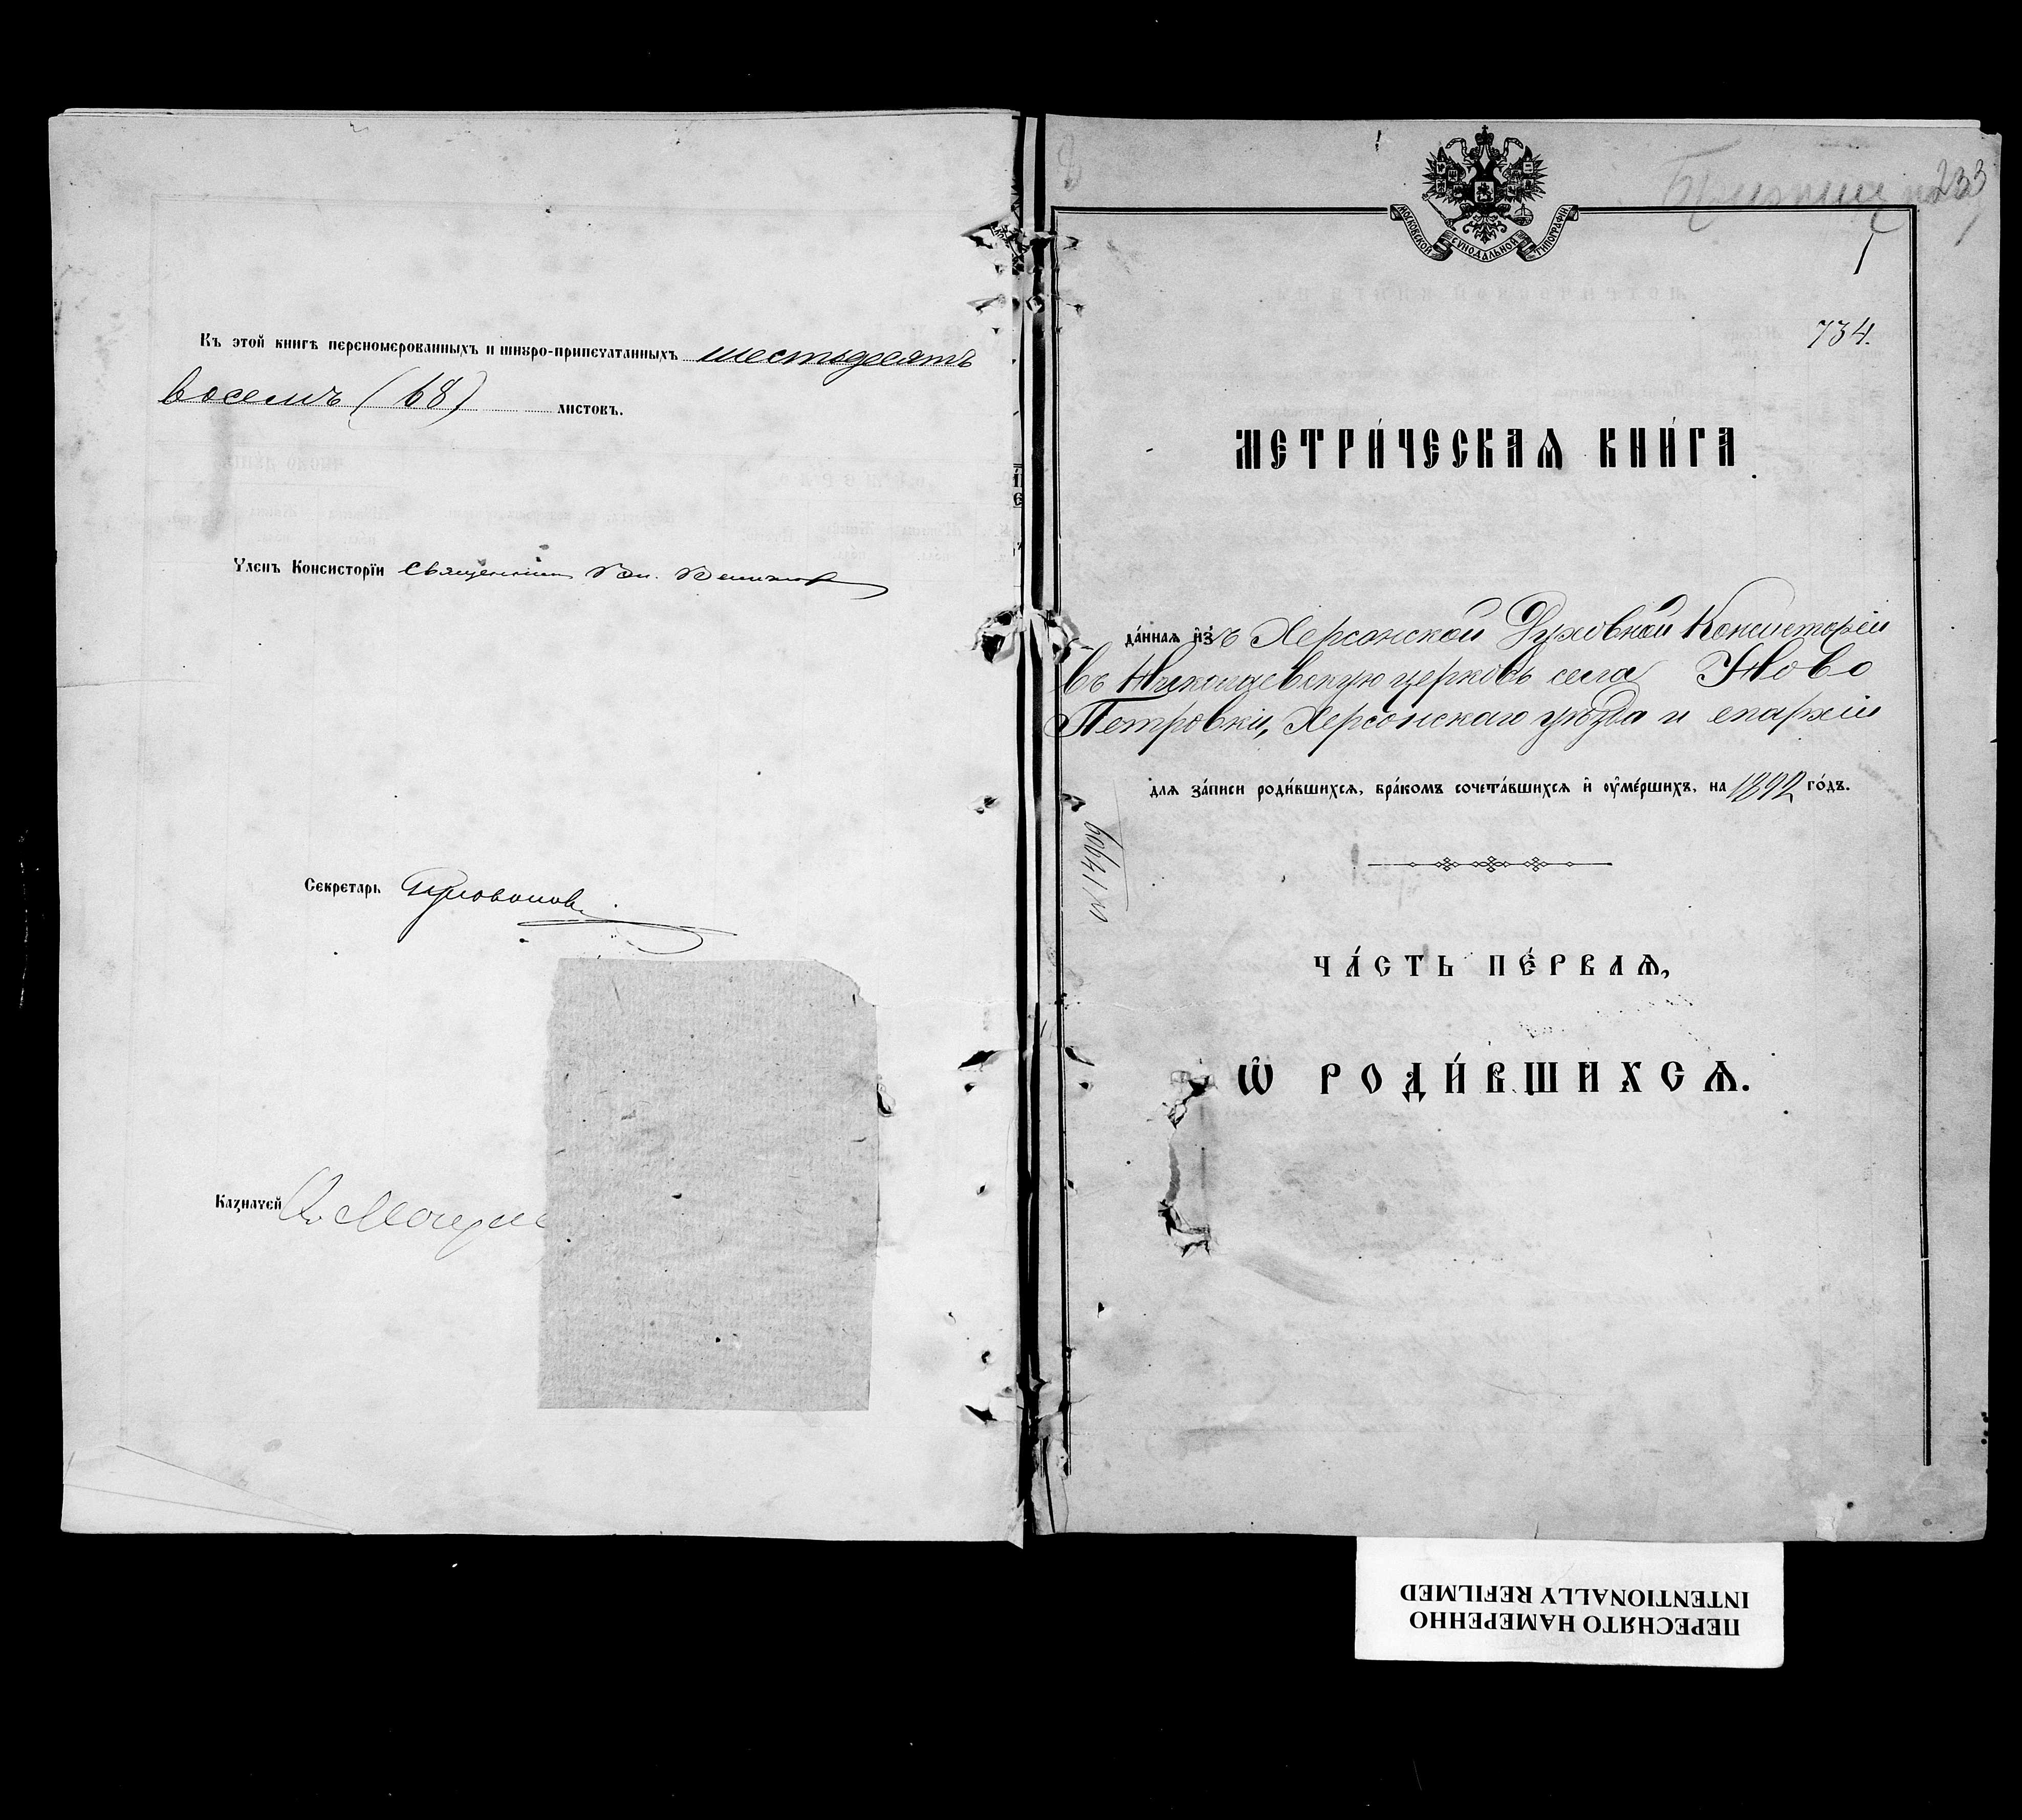 Къ этой книгѣ перенумерованныхъ и шнуро-припечатанныхъ шестьдесятъ
восемь (68) листовъ.
Членъ Консисторіи Священникъ Вл.
Секретарь
Казначей
233
1
МОСКОВСКОЙ СѴНОДАЛЬНОЙ ТИПОГРАФІИ
734.
МЕТРИ́ЧЕСКАѦ КНИ́ГА
да́ннаѧ и҆́зъ Херсонской Духовной Консисторіи
въ Николаевскую церковь села Ново
Петровки, Херсонскаго уѣзда и епархіи
длѧ за́писи роди́вшихсѧ, бра́комъ сочета́вшихсѧ и҆ оу҆ме́ршихъ, на 1892 го́дъ.
№ 14909
ЧА́СТЬ ПЕ́РВАѦ,
Ѡ҆ РОДИ́ВШИХСѦ.
ПЕРЕСНЯТО НАМЕРЕННО
INTENTIONALLY REFILMED